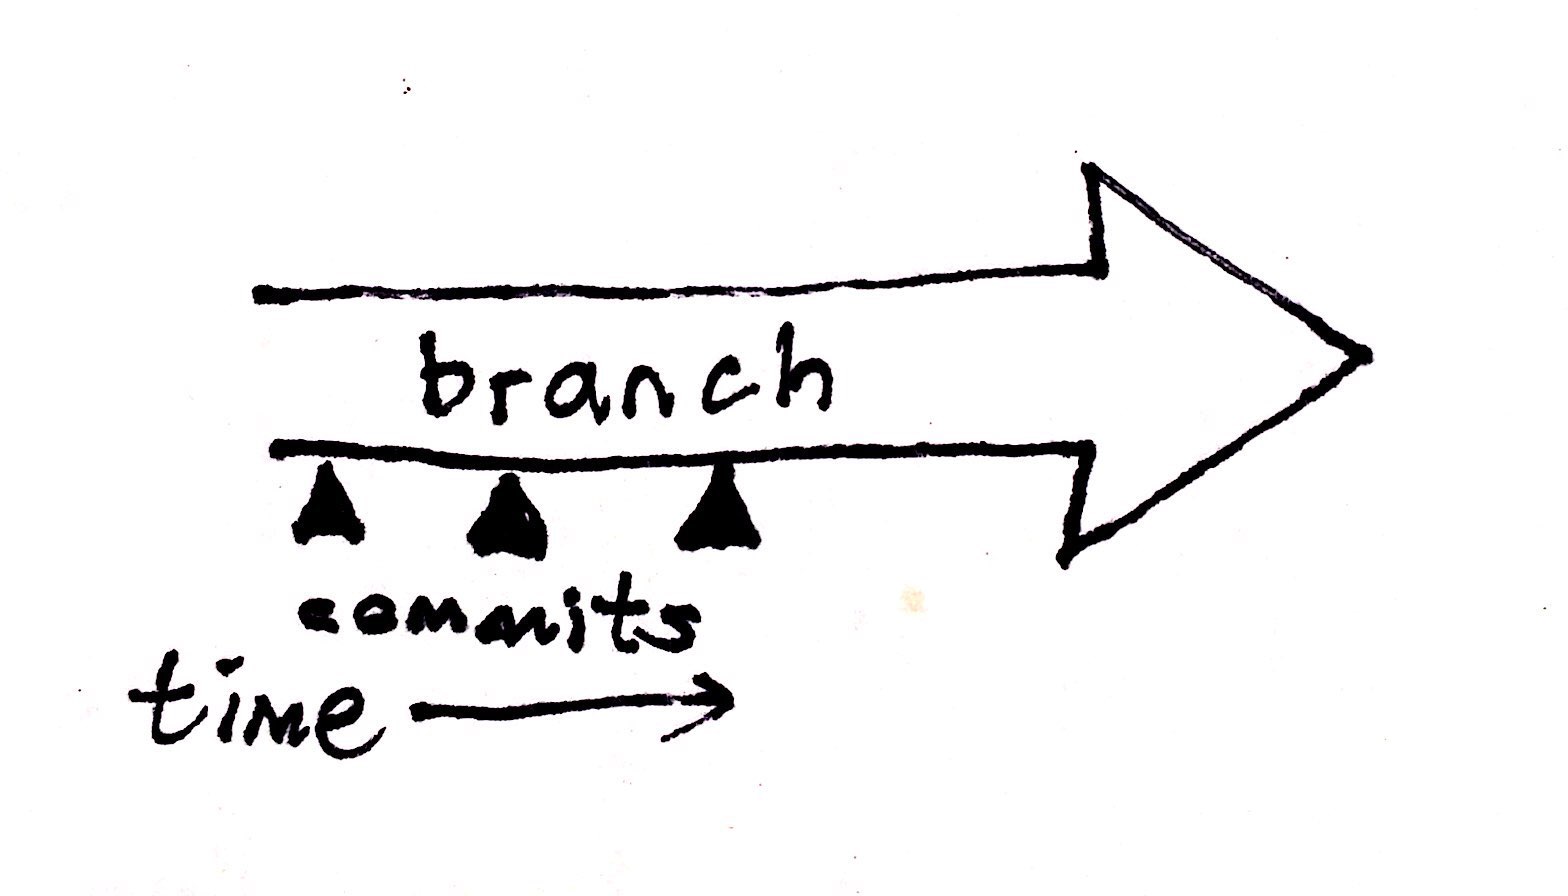 branch
commits
time